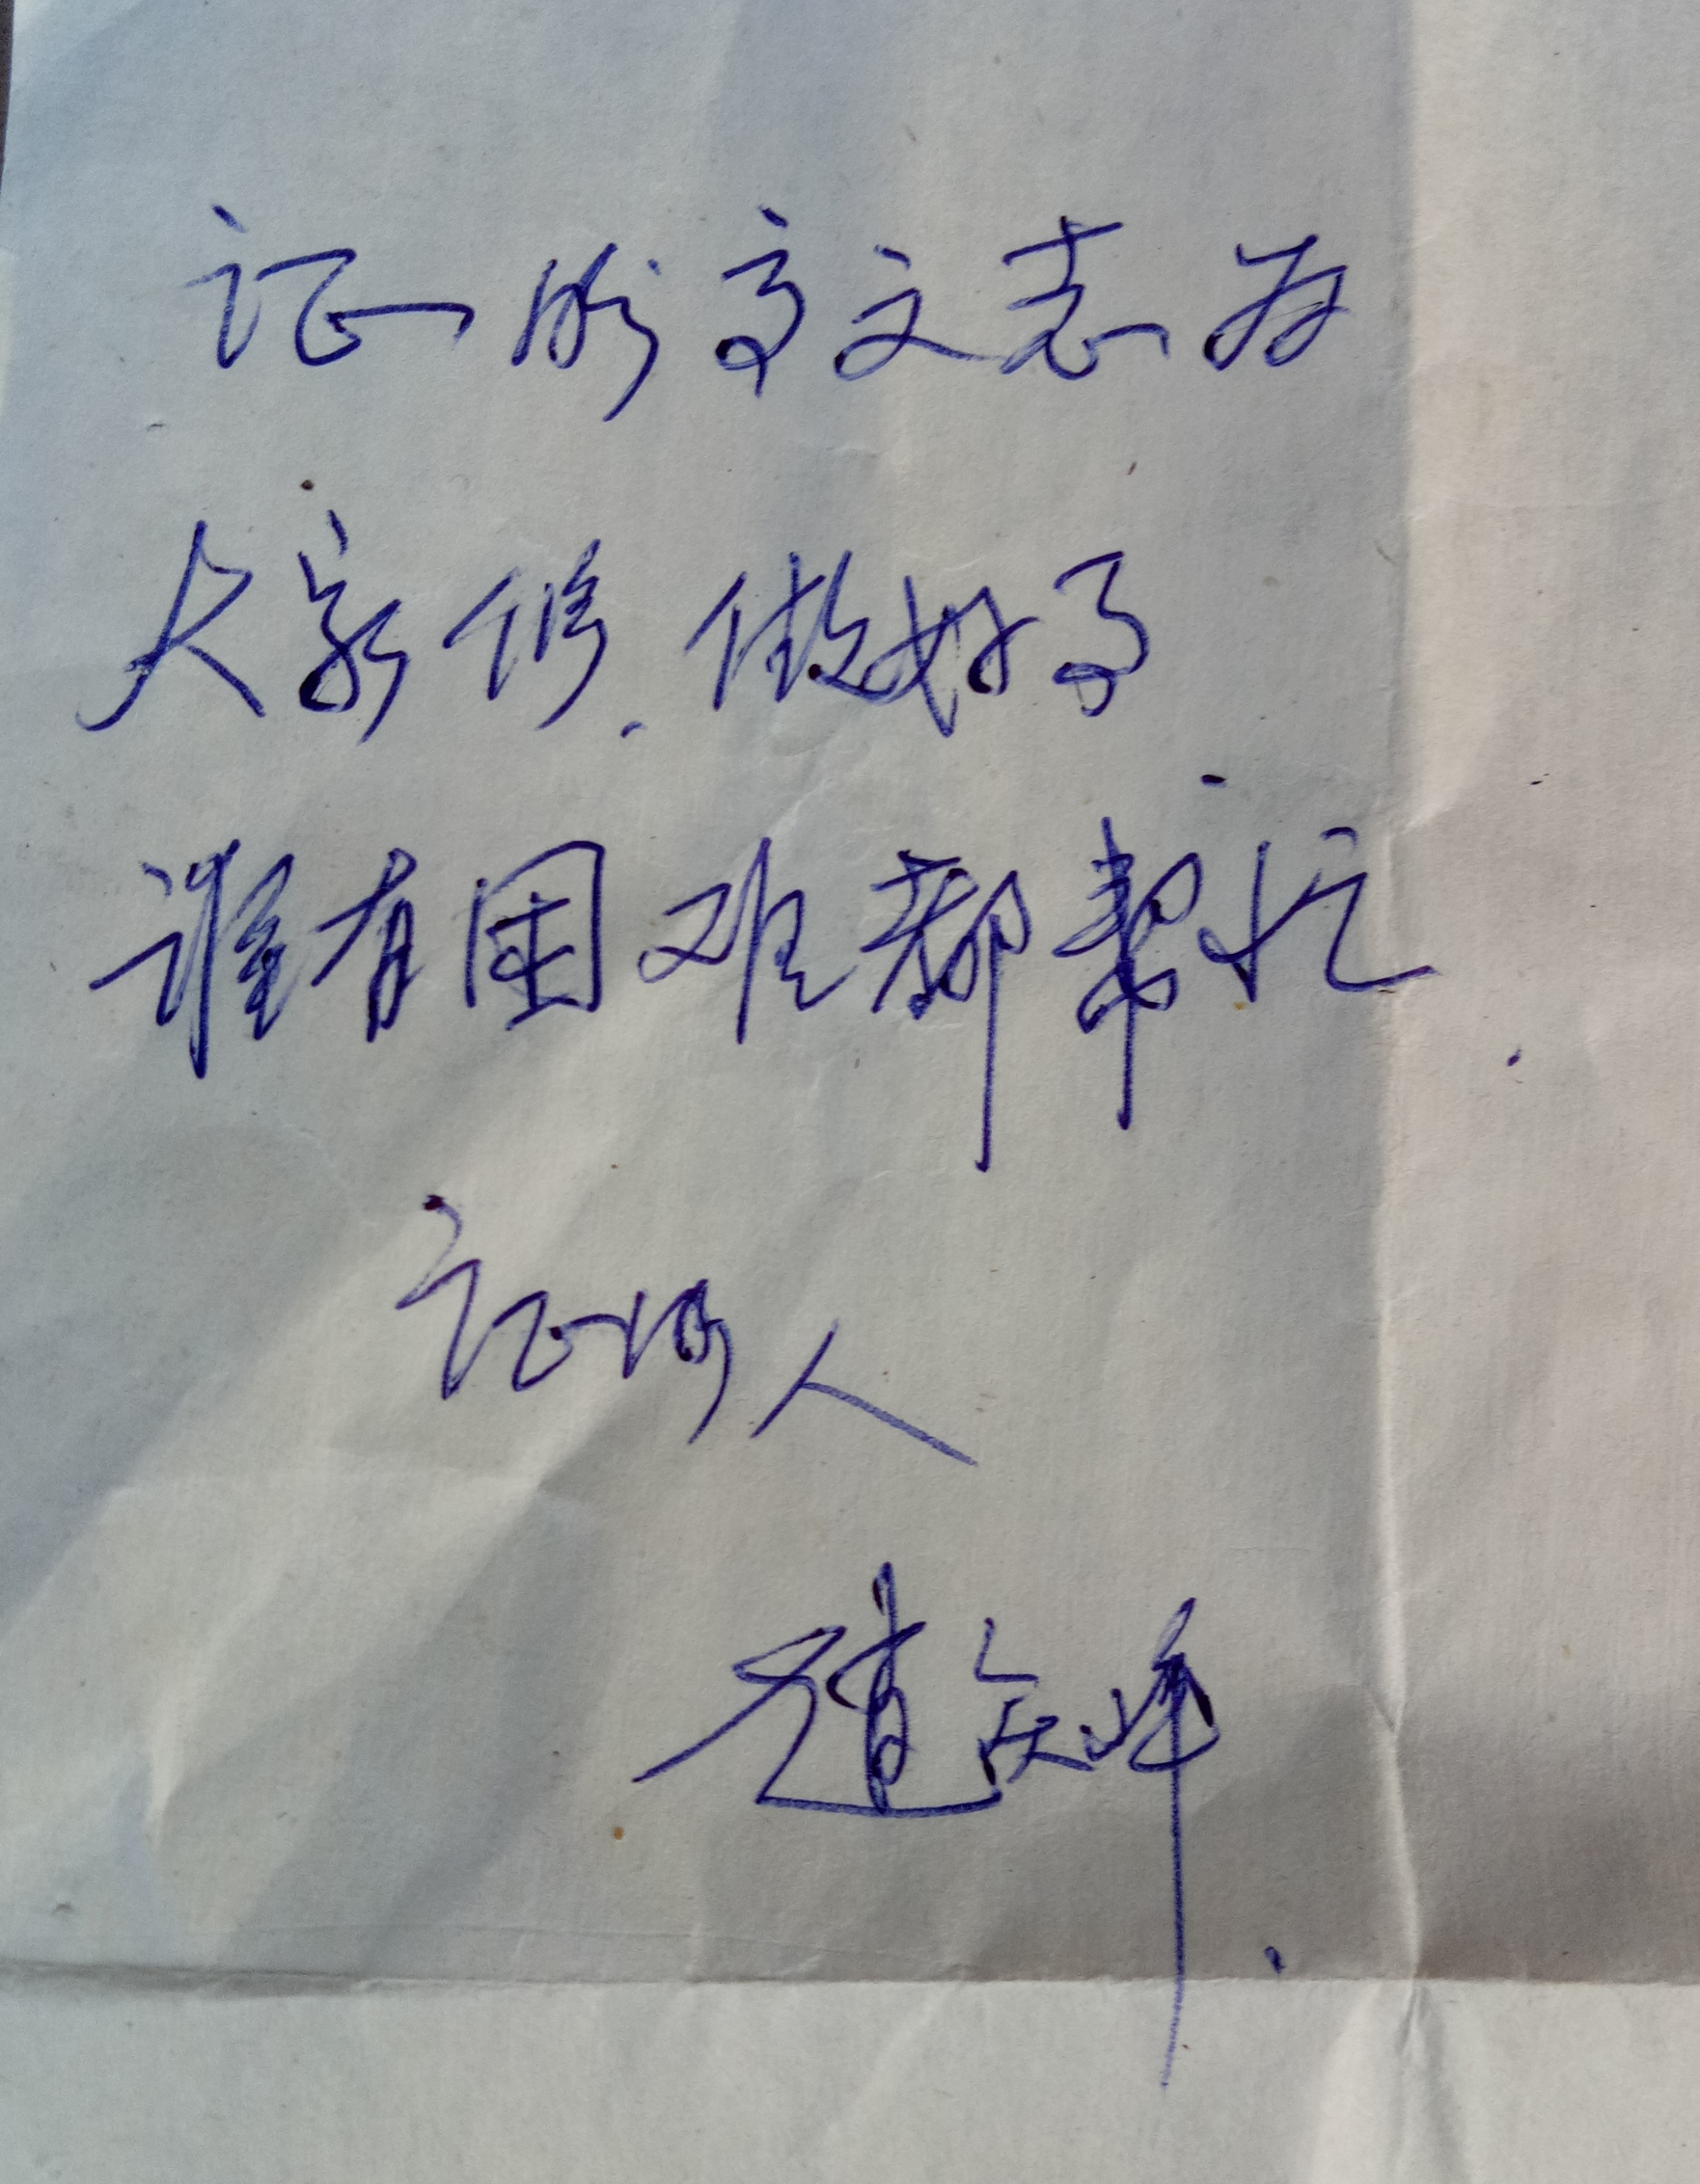 证明高文志为
大家修.做好事
谁有困难都帮忙.
证明人
赵庆峰.